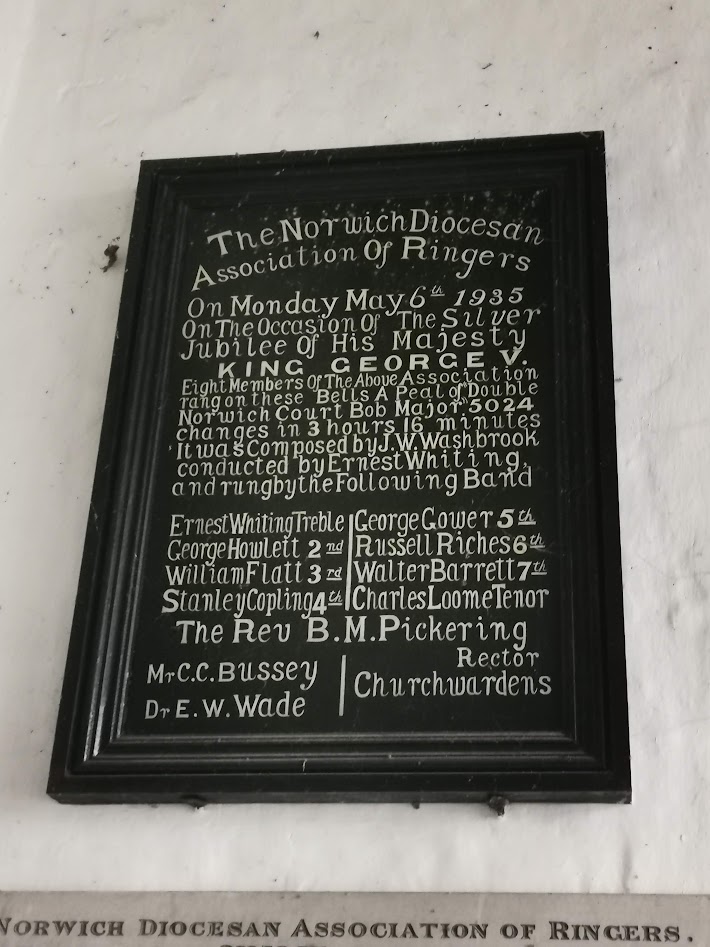 The Norwich Diocesan
Association Of Ringers
On Monday May 6th 1935
On The Occasion Of The Silver
Jubilee Of His Majesty
KING GEORGE V.
Eight Members Of The Above Association
rang on these Bells A Peal of Double
Norwich Court Bob Major, 5024
changes in 3 hours 16 minutes
It was Composed by J.W. Washbrook
conducted by Ernest Whiting,
and rung by the Following Band
Ernest Whiting Treble
George Howlett 2nd
William Flatt 3rd
Stanley Copling 4th
George Gower 5th
Russell Riches 6th
Walter Barrett 7th
Charles Loome Tenor
The Rev B.M. Pickering
Rector
Mr C.C. Bussey
Dr E.W. Wade
Churchwardens
NORWICH DIOCESAN ASSOCIATION OF RINGERS.